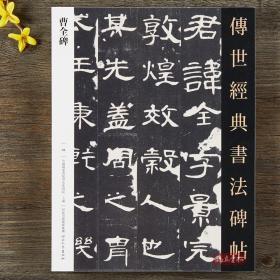 傳世經典書法碑帖
君諱全字景完
敦煌效穀人也
其先蓋周之胄
秉乾之機
曹全碑